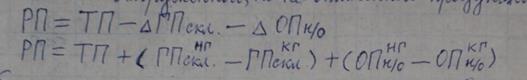 РП = ТП – Δ ГПскл. – Δ ОПн/о
РП = ТП + (ГПскл.ᴴᴦ – ГПскл.ᴷᴦ) + (ОПн/оᴴᴦ – ОПн/оᴷᴦ)